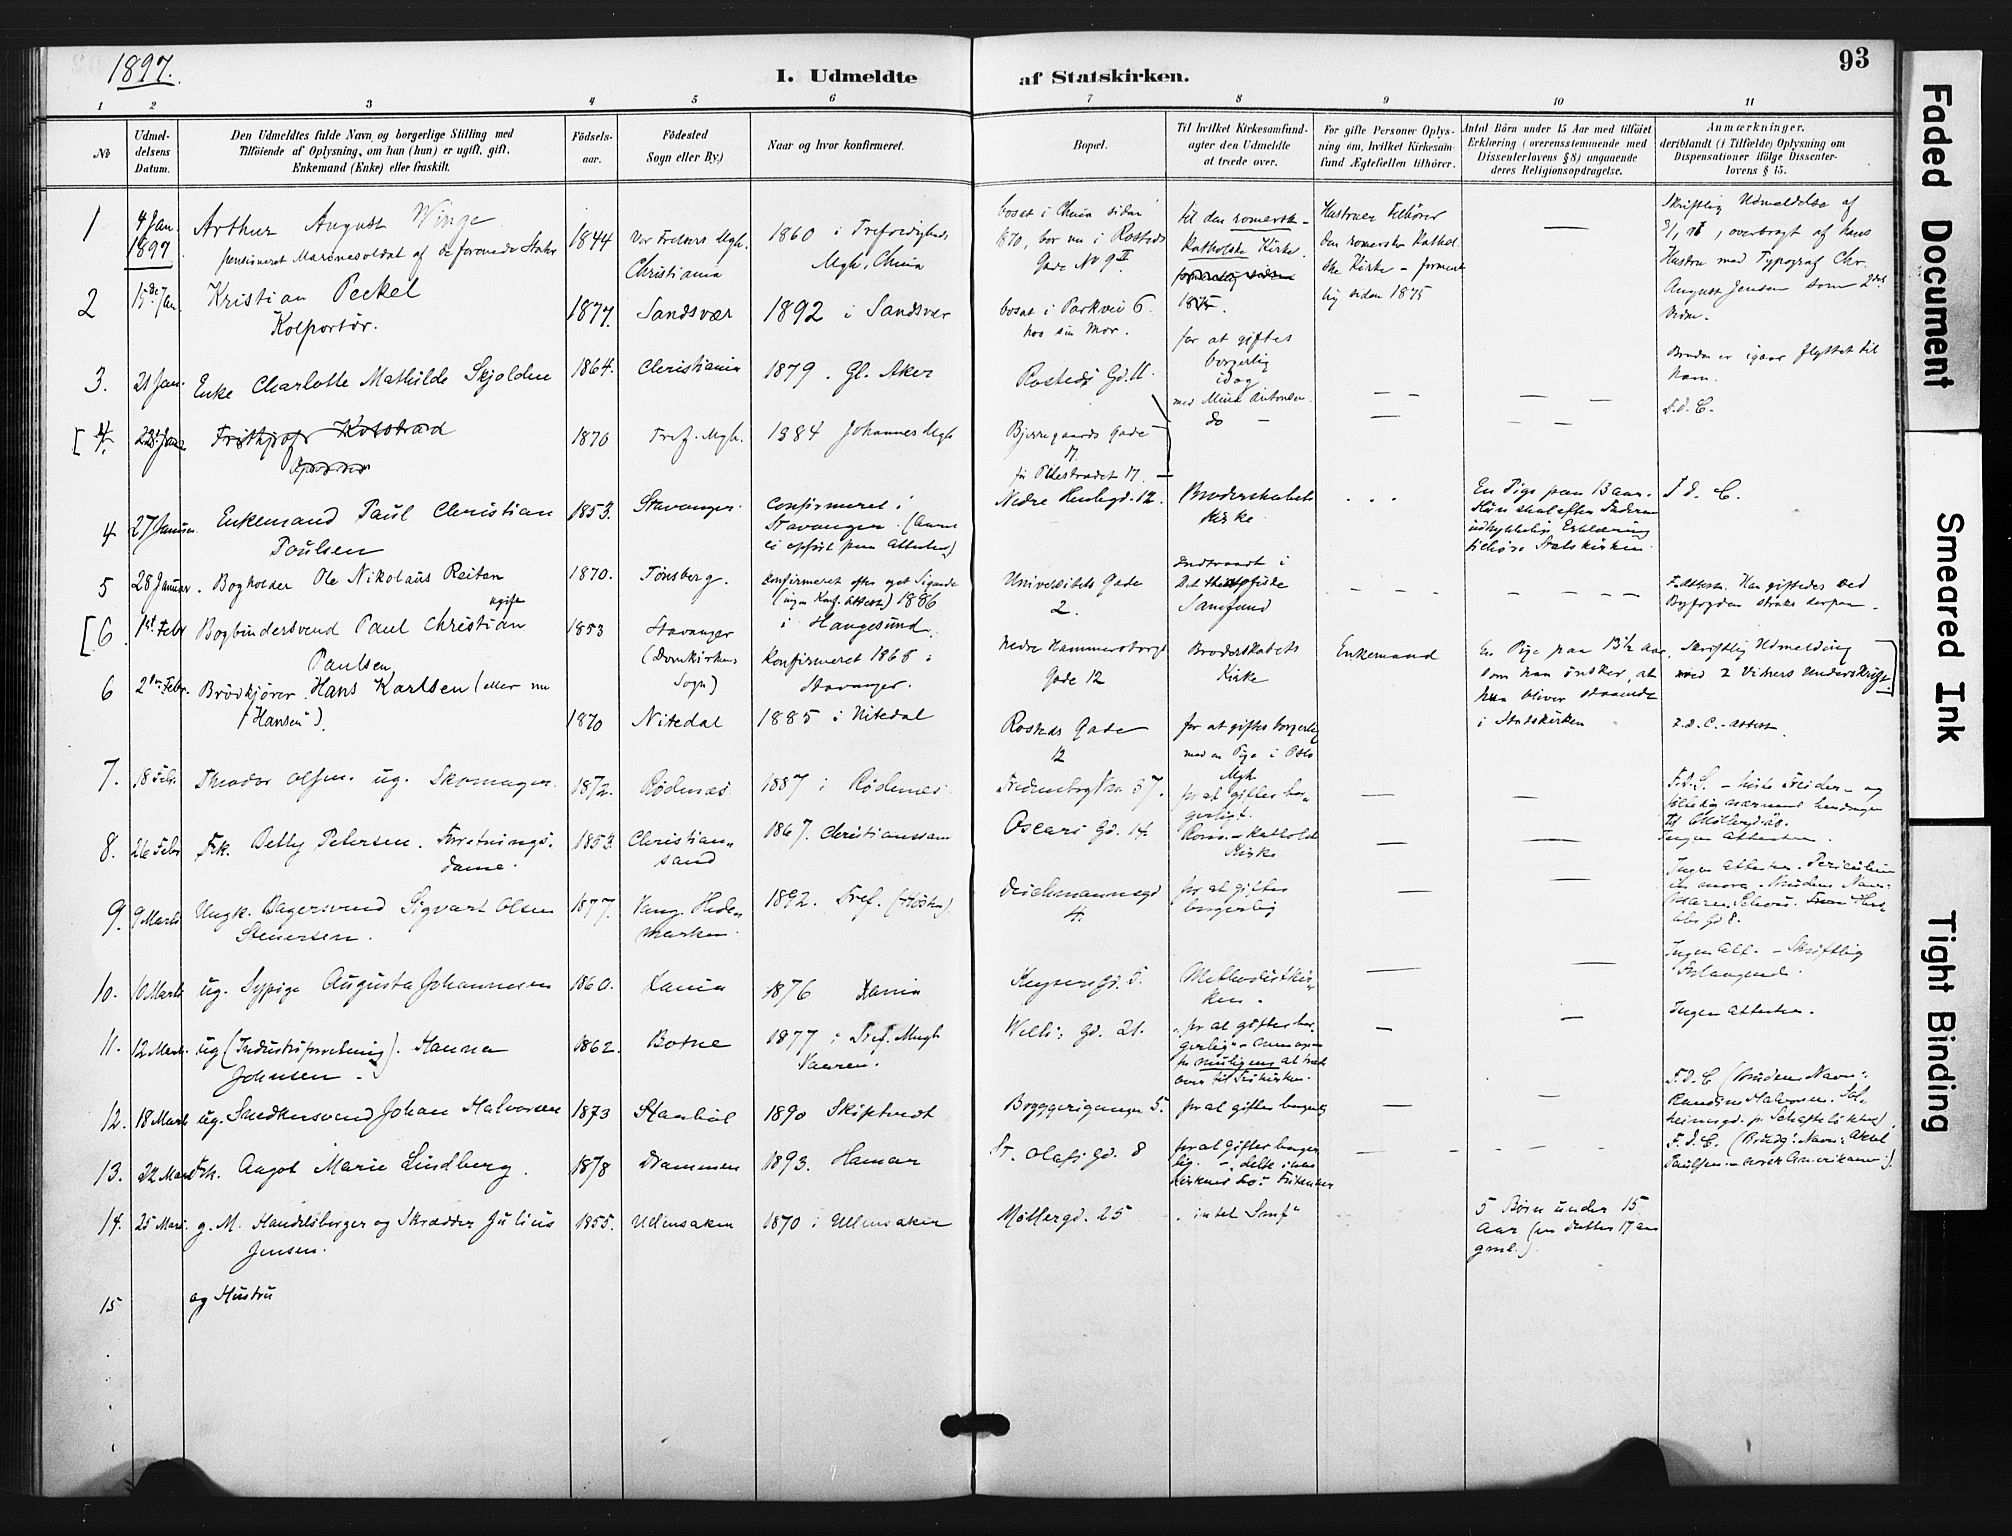 1897.
I. Udmeldte af Statskirken.
93
1 2 3 4 5 6 7 8 9 10 11
No
Udmel-
delsens
Datum.
Den Udmeldtes fulde Navn og borgerlige Stilling med
Tilføiende af Oplysning, om han (hun) er ugift, gift,
Enkemand (Enke) eller fraskilt.
Fødsels-
aar.
Fødested
Sogn eller By.)
Naar og hvor konfirmeret.
Bopæl.
Til hvilket Kirkesamfund-
agter den Udmeldte
at træde over.
For gifte Personer Oplys-
ning om, hvilket Kirkesam-
fund Ægtefællen tilhører.
Antal Børn under 15 Aar med tilføiet
Erklæring (overensstemmende med
Dissenterlovens § 8) angaaende
deres Religionsopdragelse.
Anmærkninger,
deriblandt (i Tilfælde) Oplysning om
Dispensationer ifølge Dissenter-
lovens § 15.
1
4 Jan.
1897
Arthur August Winge
pensioneret Marinesoldat af de forenede Stater
1844
Vor Frelsers Mgh.
Christiania
1860 i Trefoldigheds
Mgh, Chnia
bosat i Chnia siden
1870, bor nu i Rosteds
Gade No 9 II
til den romersk-
Katholske Kirke.
1875.
Hustruen tilhører
den romerske Kathol
ske Kirke - forment
lig siden 1875
Skriftlig Udmeldelse af
overbragt af hans
Hustru med Typograf Chr.
August Jensen som 2det
Vidne.
2
15de Jan.
Kristian Peckel
Kolportør.
1877.
Sandsvær
1892 i Sandsvær
bosat i Parkvei 6
hos sin Mor.
for at giftes
borgerlig
idag
med Mina Antonsen
Bruden er igaar flyttet til
ham.
3.
21 Jan.
Enke Charlotte Mathilde Skjolden
1864.
Christiania
1879. Gl. Aker
Rosteds Gd. 11.
do -
F.d. C.
[4.
22 Jan
Frithjof
1870
Tref. Mgh.
1884 Johannes Mgh
Bjerregaards Gade
17.
før Pilestrædet 17.
4
27 Januar
Enkemand Paul Christian
Poulsen
1853.
Stavanger.
Confirmeret i
Stavanger. (Aaret
ei opført paa Attesten)
Nedre 12.
Broderskabets
Kirke
En Pige paa 13 aar.
Hun skal efter Faderens
udtrykkelige Erklæring
tilhøre Statskirken.
F. d. C.
5
28 Januar.
Bogholder Ole Nikolaus Reitan
ugift
1870.
Tønsberg.
Konfirmeret efter eget Sigende
(ingen Konf. Attest) 1886
i Haugesund.
Universitets Gade
2.
Indtraadt i
Det theosofiske
Samfund
F. Attest. Han giftedes ved
Byfogden straks derpaa.
[6
1st Febr
Bogbindersvend Paul Christian
Paulsen
1853
Stavanger
(Domkirkens
Sogn)
Konfirmeret 1868 i
Stavanger.
Nedre Hammersborgs
Gade 12
Broderskabets
Kirke
Enkemand
En Pige paa 13½ aar,
som han ønsker, at
hun bliver staaende
i Statskirken
Skriftlig Udmelding
med 2 Vidners Underskrift.]
6
2den Febr.
Brødkjører Hans Karlsen (eller nu
"Hansen").
1870
Nitedal
1885 i Nitedal
Rosteds Gade
12
for at giftes borgerlig
med en Pige i Oslo
Mgh.
F.d.C. - Attest.
7.
18 Febr.
Theodor Olsen. ug. Skomager.
1872.
Rødenæs.
1887 i Rødenæs.
Fredensborgvn 37.
for at giftes bor-
gerligt.
8.
26 Febr
Frk. Betty Petersen. Forretnings-
dame.
1853.
Christian-
sand
1867. Christianssand
Oscars Gd. 14
Rom.-katholsk
Kirke
Ingen Attester.
9.
9 Marts
Ungk. Bagersvend Sigvart Olsen
Steuersen.
1877.
Vang. Hede-
marken.
1892. Tref.
Deichmannsgd
4.
for at giftes
borgerlig
10.
10 Marts
ug. Sypige Augusta Johannesen
1860.
Xania
1876 Xania
Keysersgd. 5.
Methodistkir-
ken.
Ingen Att. - Skriftlig
Forlangende.
11.
12 Marts
ug (Industriforretning). Hanna
Johnsen
1862.
Botne
1877 i Tref. Mngh
Xanien.
Welh. Gd. 21.
"for at giftes bor-
gerlig"
for muligens at træde
over til Frikirken.
Ingen Attester.
12.
18 Marts
ug. Snedkersvend Johan Halvorsen
1873
1890 Skiptvedt
Bryggerigangen 5.
for at giftes borgerlig
F.d. C (Brudens Navn:
13.
22 Mars
Frk. Aagot Marie Lindberg.
1878
Drammen
1893. Hamar
St. Olafs Gd. 8
for at giftes borger
lig.
F. d. C. (Brudg. Navn: Axel
Paulsen - norsk Amerikaner.).
14.
25 Mars.
g. M. Handelsborger og Skrædder Julius
Jensen.
1855.
Ullensaker
1870 i Ullensaker
Møllergd. 25
"intet Smf"
5 Børn under 15
Aar (en Datter 17 aar
gml.)
15
og Hustru
Faded Document
Smeared Ink
Tight Binding